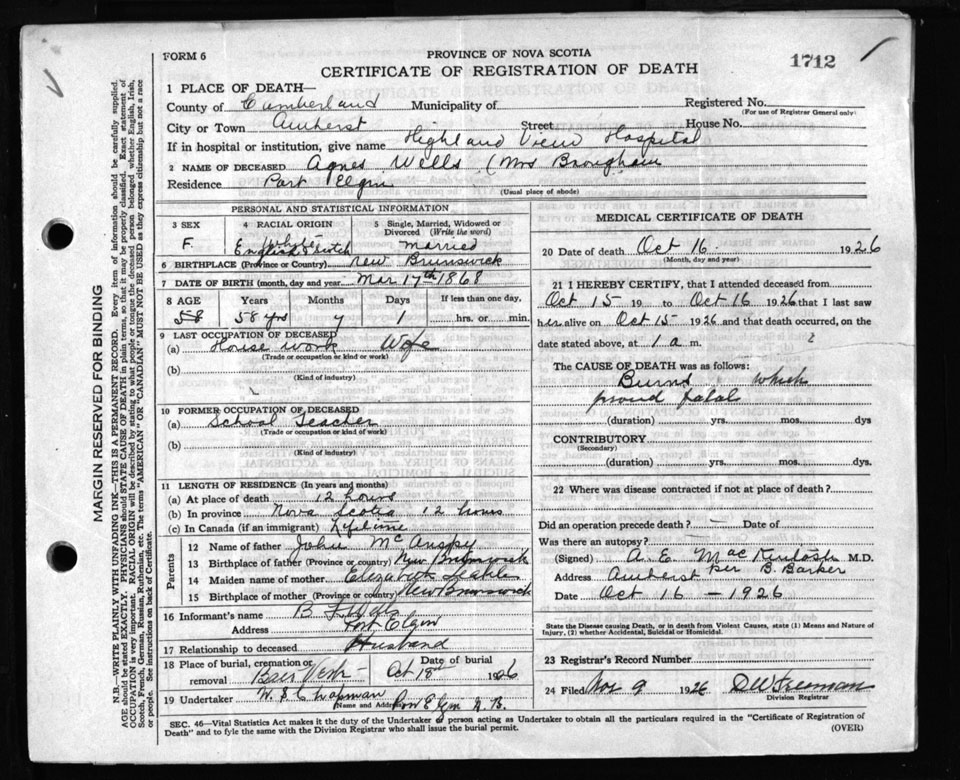 FORM 6
PROVINCE OF NOVA SCOTIA
1712
CERTIFICATE OF REGISTRATION OF DEATH
1 PLACE OF DEATH—
County of Cumberland Municipality of Registered No.
(For use of Registrar General only)
City or Town Amherst Street House No.
If in hospital or institution, give name Highland View Hospital
2 NAME OF DECEASED Agnes Wells (Mrs
Residence Port Elgin
(Usual place of abode)
PERSONAL AND STATISTICAL INFORMATION
3 SEX 4 RACIAL ORIGIN 5 Single, Married, Widowed or Divorced (Write the word)
F. White English married
6 BIRTHPLACE (Province or Country) New Brunswick
7 DATE OF BIRTH (month, day and year) Mar 17th 1868
8 AGE Years Months Days If less than one day,
58 58 yrs 7 1 hrs. or min.
9 LAST OCCUPATION OF DECEASED
(a) House work Wife
(Trade or occupation or kind or work)
(b)
(Kind of industry)
10 FORMER OCCUPATION OF DECEASED
(a) School Teacher
(Trade or occupation or kind or work)
(b)
(Kind of industry)
11 LENGTH OF RESIDENCE (In years and months)
(a) At place of death 12 hours
(b) In province Nova Scotia 12 hours
(c) In Canada (if an immigrant) Lifetime
Parents
12 Name of father John
13 Birthplace of father (Province or country) New Brunswick
14 Maiden name of mother Elizabeth
15 Birthplace of mother (Province or country) New Brunswick
16 Informant's name B F Wells
Address Port Elgin
17 Relationship to deceased Husband
18 Place of burial, cremation or removal Baie Verte Date of burial Oct 18 1926
19 Undertaker W. S. Chapman
Name and Address Port Elgin N. B.
MEDICAL CERTIFICATE OF DEATH
20 Date of death Oct 16 1926
(Month, day and year)
21 I HEREBY CERTIFY, that I attended deceased from
Oct 15 19 to Oct 16 1926 that I last saw
her alive on Oct 15 1926 and that death occurred, on
date stated above, at 1 a m.
The CAUSE OF DEATH was as follows:
Burns which
proved fatal
(duration) yrs. mos. dys
CONTRIBUTORY
(Secondary)
(duration) yrs. mos. dys.
22 Where was disease contracted if not at place of death?
Did an operation precede death? — Date of
Was there an autopsy? —
(Signed) A. E. MacKintosh M.D.
Address Amherst Per B. Barker
Date Oct 16 — 1926
State the Disease Causing Death, or in death from Violent Causes, state (1) Means and Nature of
Injury, (2) whether Accidental, Suicidal or Homicidal.
23 Registrar's Record Number
24 Filed Nov 9 1926 DW Freeman
Division Registrar
SEC. 46—Vital Statistics Act makes it the duty of the Undertaker or person acting as Undertaker to obtain all the particulars required in the "Certificate of Registration of
Death" and to fyle the same with the Division Registrar who shall issue the burial permit. (OVER)
MARGIN RESERVED FOR BINDING
N.B.—WRITE PLAINLY WITH UNFADING INK—THIS IS A PERMANENT RECORD. Every item of information should be carefully supplied.
AGE should be stated EXACTLY. PHYSICIANS should STATE CAUSE OF DEATH in plain terms, so that it may be properly classified. Exact statement of
OCCUPATION is very important. RACIAL ORIGIN will be described by stating to what people or tongue the deceased person belonged whether English, Irish,
Scotch, French, German, Russian, Ruthenian, etc. The terms "AMERICAN" or "CANADIAN" MUST NOT BE USED as they express citizenship but not a race
or people. See instructions on back of Certificate.